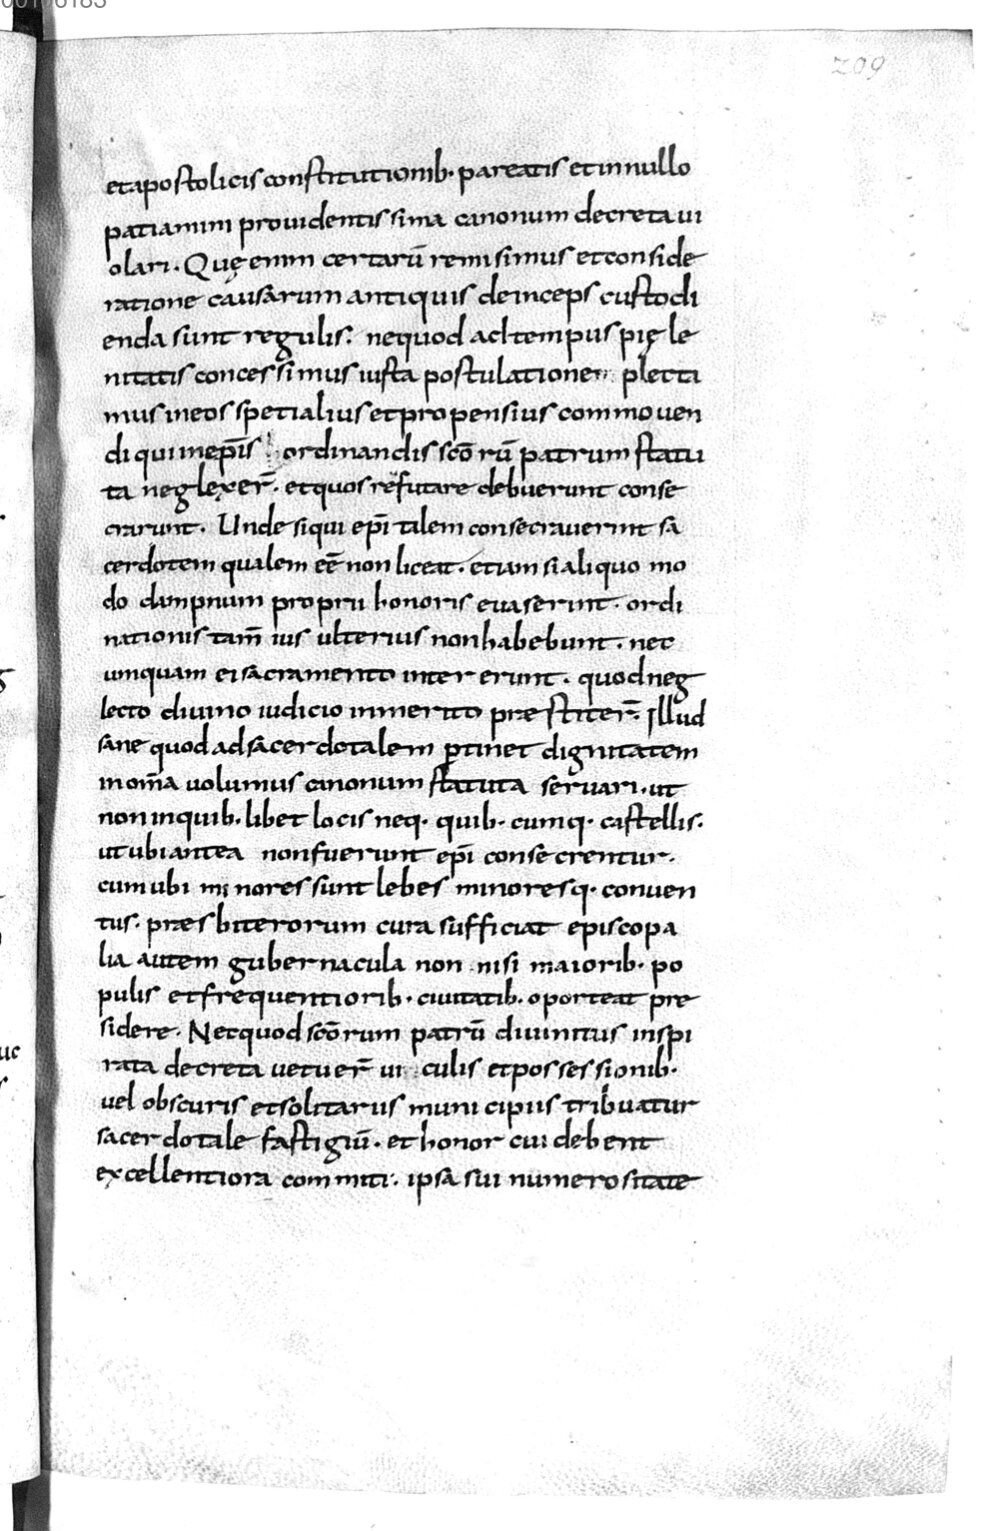 209
et apostolicis constitutionib· pareatis et in nullo
patiamini providentissima canonum decreta vi
olari. Quę enim certarū remisimus et conside
ratione causarum antiquis deinceps custodi
enda sunt regulis. ne quod ad tempus pię le
nitatis concessimus iusta postulatione plecti
mus in eos spetialius et propensius commoven
di qui in ep̄is ordinandis sc̄orū patrum statu
ta neglexer̄. et quos refutare debuerunt conse
crarunt. Unde si qui ep̄i talem consecraverint sa
cerdotem qualem eē non liceat. etiam si aliquo mo
do dampnum proprii honoris evaserint. ordi
nationis tam̄ ius ulterius non habebunt. nec
umquam ei sacramento intererunt. quod neg
lecto divino iudicio inmerito præstiter̄. Illud
sane quod ad sacerdotalem ꝑtinet dignitatem
in om̄a volumus canonum statuta servari. ut
non in quib·libet locis neq· quib·cumq· castellis.
ut ubi antea non fuerunt ep̄i consecrentur.
cum ubi minores sunt lebes minoresq· conven
tus. præsbiterorum cura sufficiat episcopa
lia autem gubernacula non nisi maiorib· po
pulis et frequentiorib· civitatib· oporteat pre
sidere. Nec quod sc̄orum patrū divinitus inspi
rata decreta vetuer̄ vi culis et possessionib·
vel obscuris et solitariis municipiis tribuatur
sacerdotale fastigiū. et honor cui debent
excellentiora commiti. ipsa sui numerositate